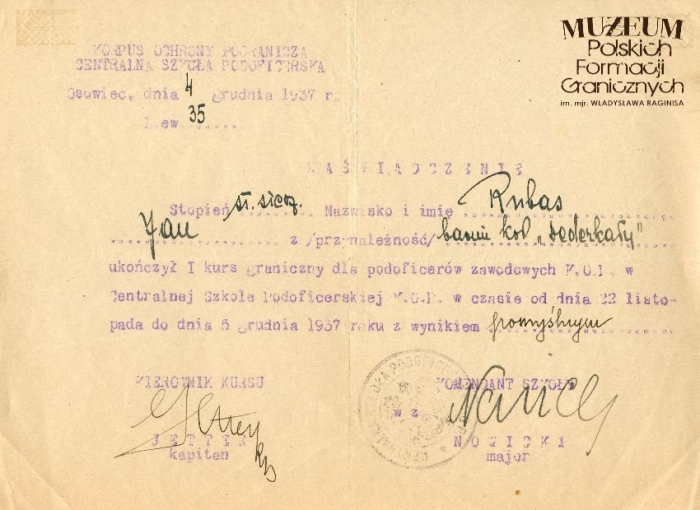 MUZEUM
Polskich
Formacji
Granicznych
im. mjr. WŁADYSŁAWA RAGINISA
KORPUS OCHRONY POGRANICZA
CENTRALNA SZKOŁA PODOFICERSKA
Osowiec, dnia 4 grudnia 1937 r.
L.ew 35
ZAŚWIADCZENIE
Stopień st. sierż. Nazwisko i imię Rubas
Jan z /przynależność/ baonu "Dederkały"
ukończył I kurs graniczny dla podoficerów zawodowych K.O.P. w
Centralnej Szkole Podoficerskiej K.O.P. w czasie od dnia 22 listo-
pada do dnia 5 grudnia 1937 roku z wynikiem pomyślnym
KIEROWNIK KURSU
KOMENDANT SZKOŁY
w z
JETTER
kapitan
NOWICKI
major